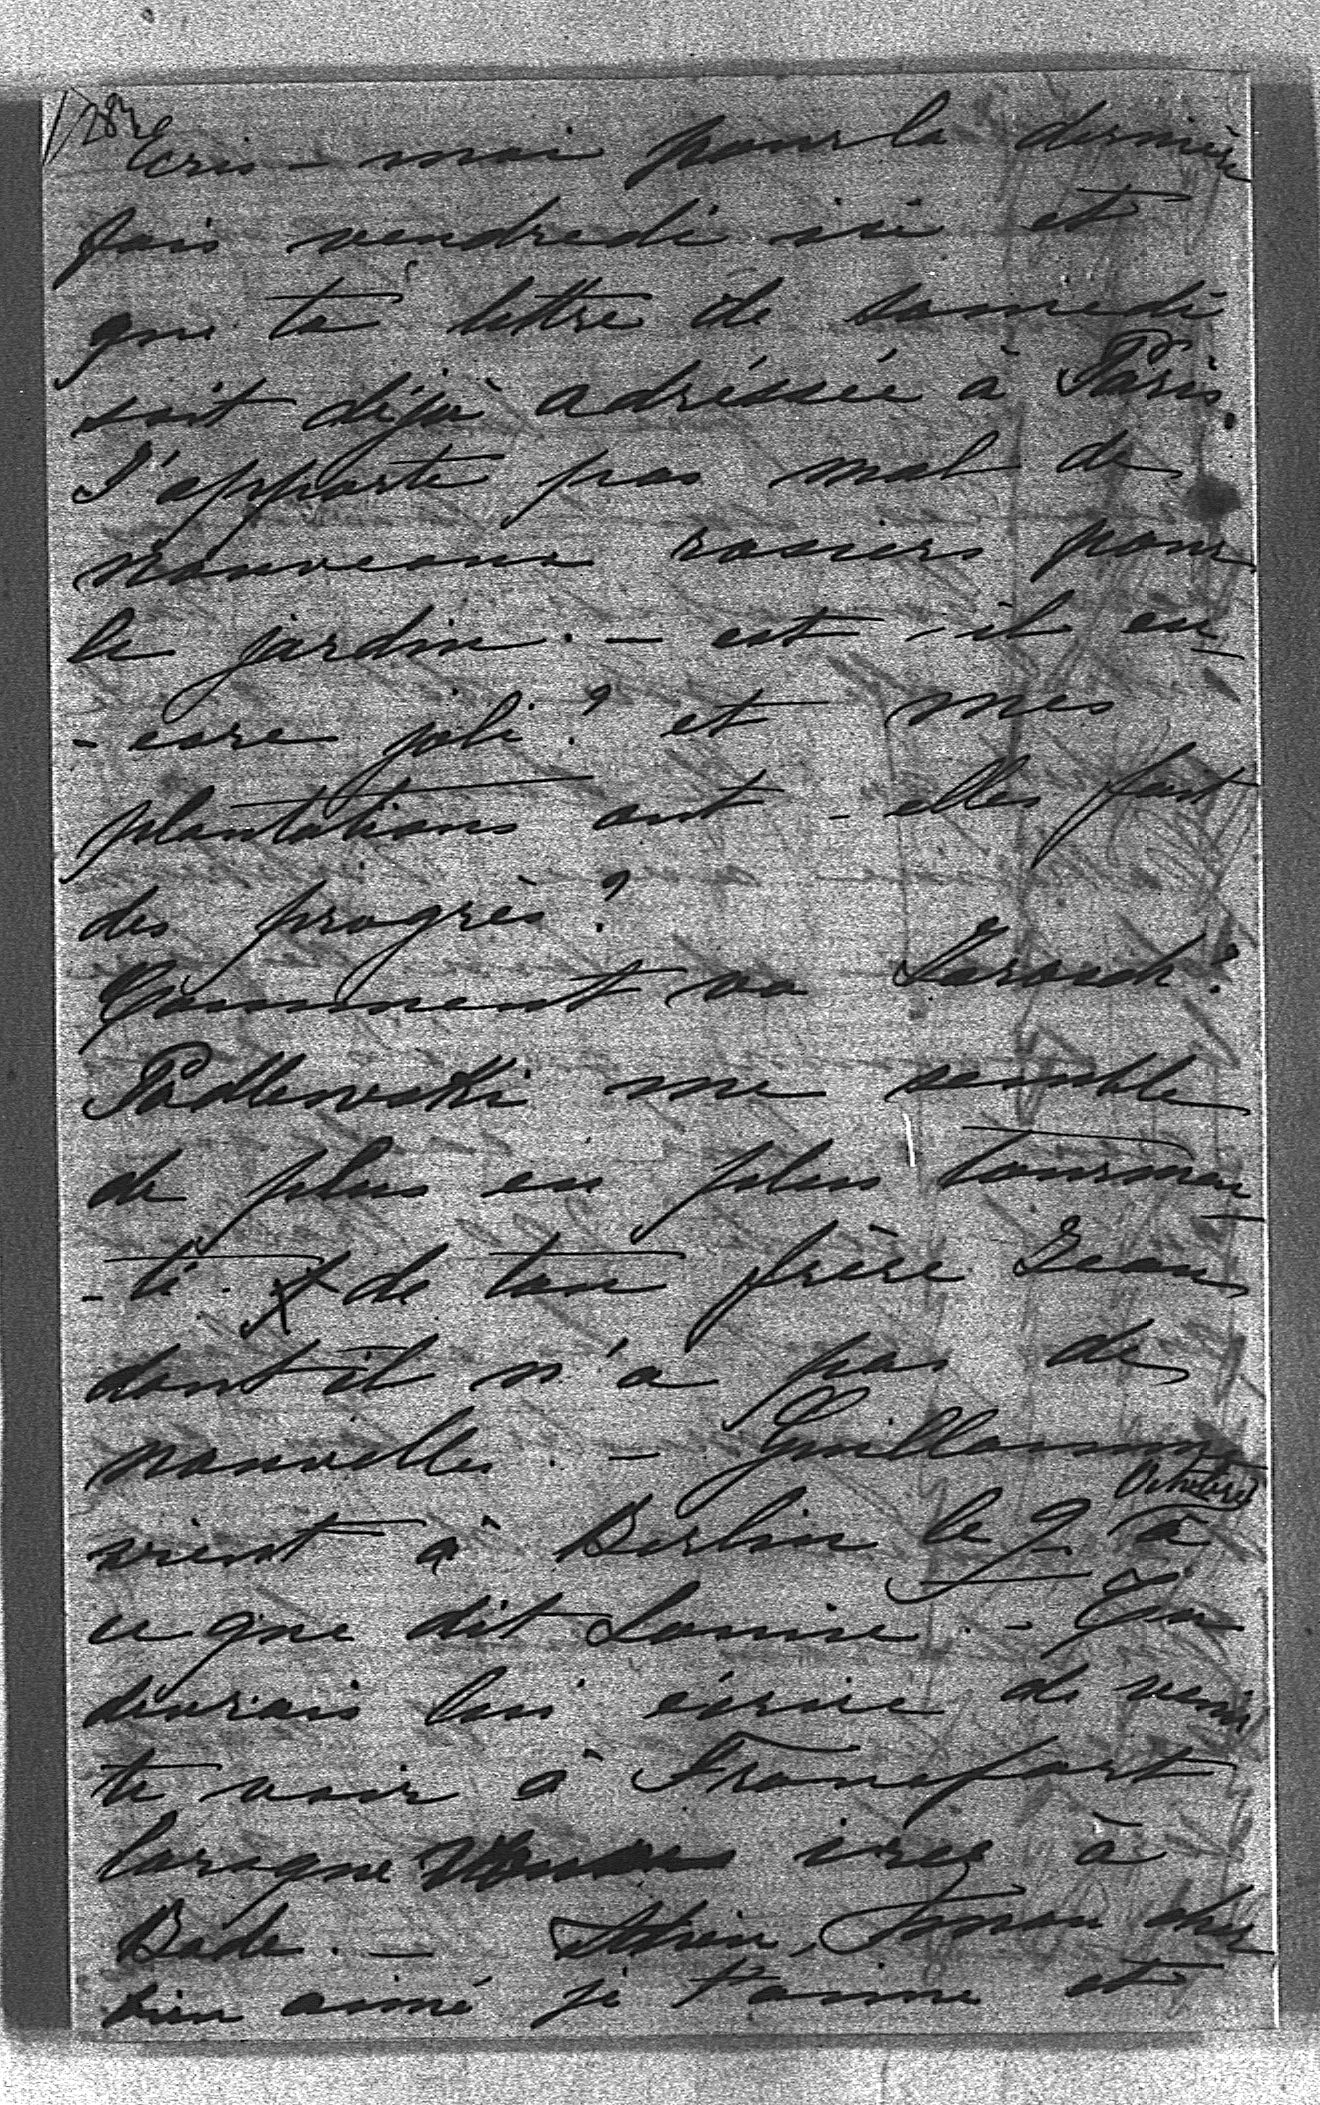 1283
Ecris-moi pour la dernière
fois vendredi ici et
que ta lettre de samedi
soit déjà adréssée à Paris.
J'apporte pas mal de
nouveaux rosiers pour
le jardin. - est-il en-
-core joli? et mes
plantations ont-elles fait
des progrès?
Comment va
Padlewski me semble
de plus en plus tourmen-
-té de ton frère Jean
dont il n'a pas de
nouvelles. - Guillaume
Octobre
vient à Berlin le 9 à
ce que dit Louise. - Tu
devrais lui écrire de venir
te voir à Francfort
lorsque iras à
Bade. - Adieu, mon cher
bien aimé je t'aime et